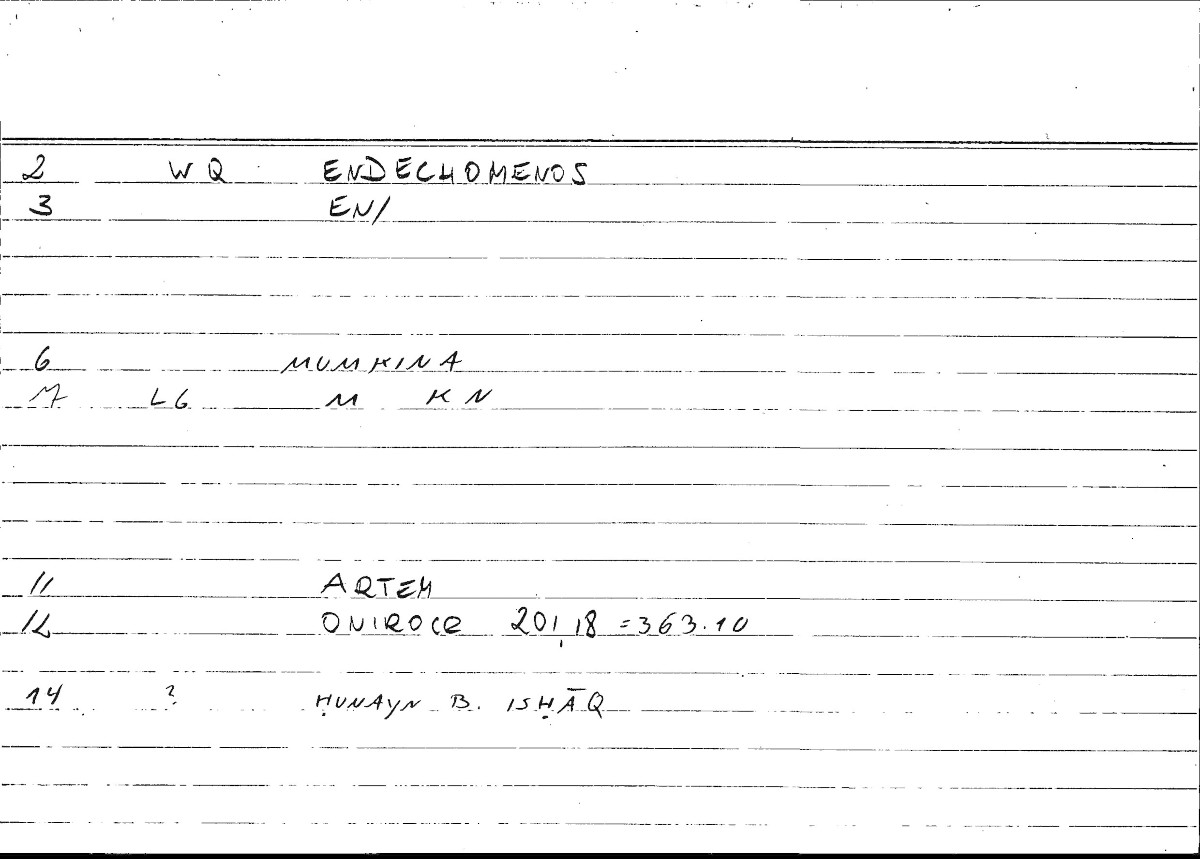 2 WQ ENDECHOMENOS
3 EN/
6 MUMKINA
7 LG M KN
11 ARTEM
12 ONIROCR 201,18 =363.10
14 ? ḤUNAYN B. ISḤĀQ